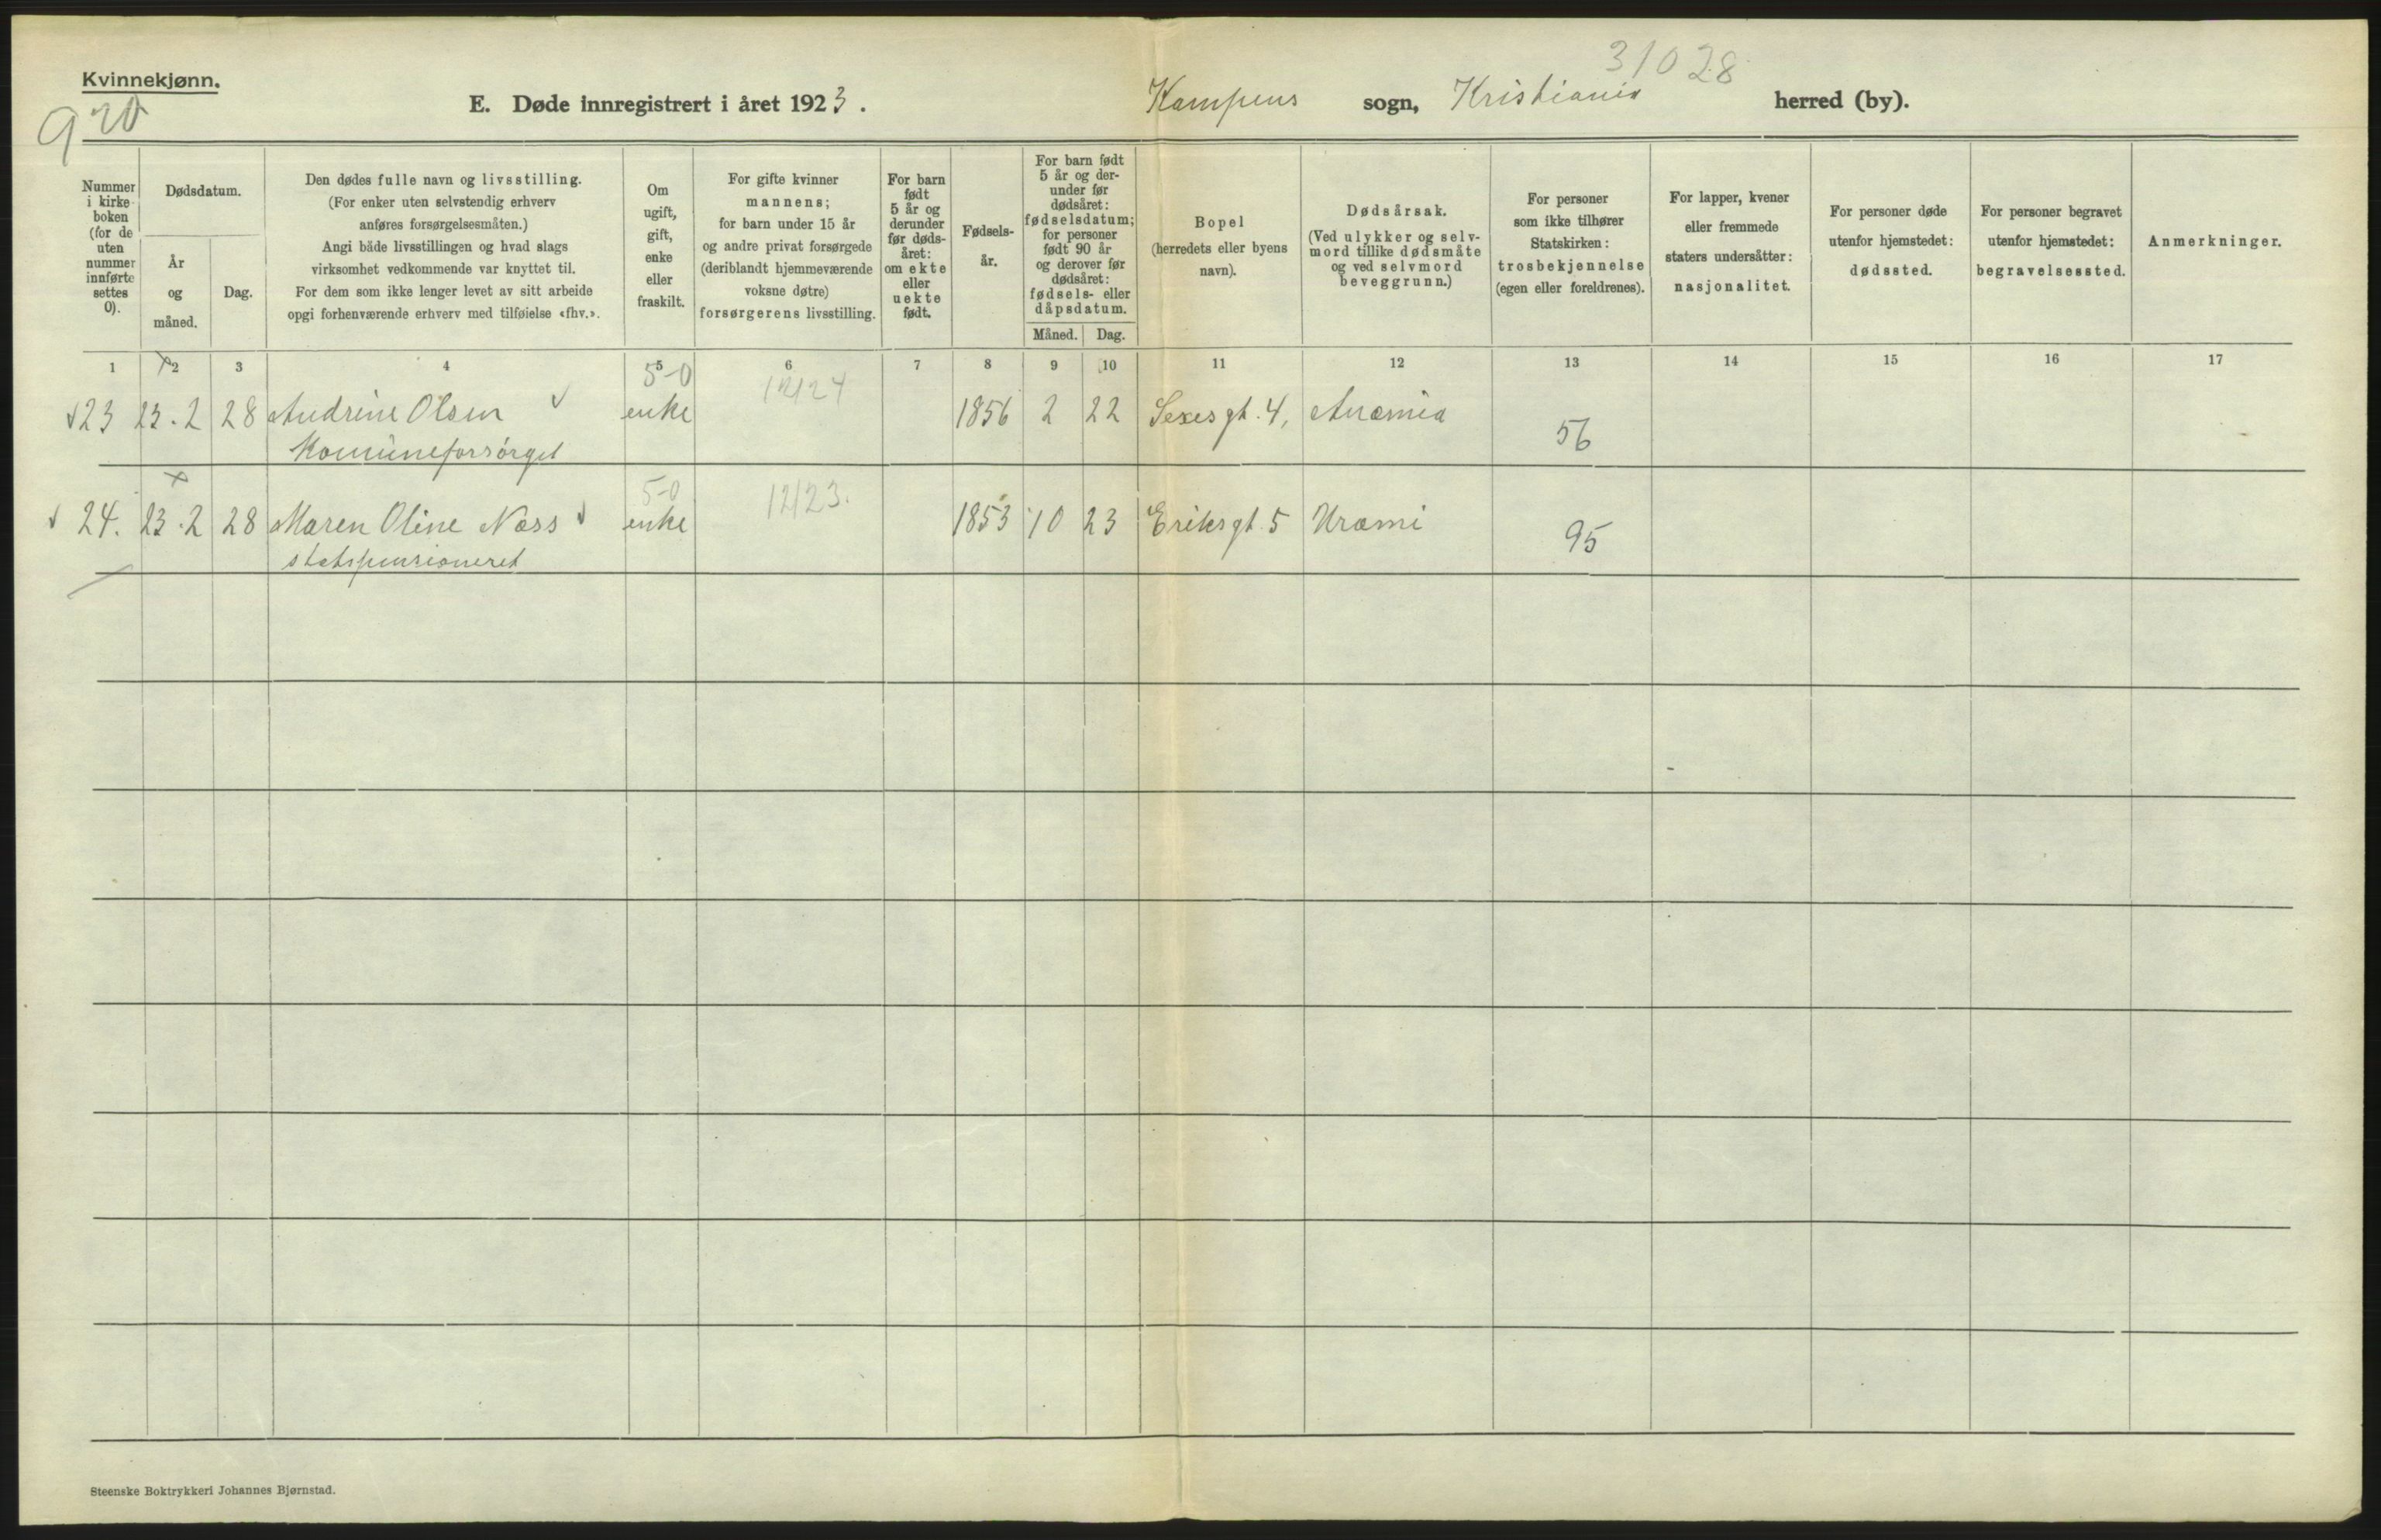 Kvinnekjønn.
920
31028
E. Døde innregistrert i året 1923. Kampens sogn, Kristiania herred (by).
Nummer
i kirke-
boken
(for de
uten
nummer
innførte
settes
0).
Dødsdatum.
År
og
måned.
Dag.
Den dødes fulle navn og livsstilling.
(For enker uten selvstendig erhverv
anføres forsørgelsesmåten.)
Angi både livsstillingen og hvad slags
virksomhet vedkommende var knyttet til.
For dem som ikke lenger levet av sitt arbeide
opgi forhenværende erhverv med tilføielse «fhv.».
Om
ugift,
gift,
enke
eller
fraskilt.
For gifte kvinner
mannens;
for barn under 15 år
og andre privat forsørgede
(deriblandt hjemmeværende
voksne døtre)
forsørgerens livsstilling.
For barn
født
5 år og
derunder
før døds-
året:
om ekte
eller
uekte
født.
Fødsels-
år.
For barn født
5 år og der-
under før
dødsåret:
fødselsdatum;
for personer
født 90 år
og derover før
dødsåret:
fødsels- eller
dåpsdatum.
Måned. Dag.
Bopel
(herredets eller byens
navn).
Dødsårsak.
(Ved ulykker og selv-
mord tillike dødsmåte
og ved selvmord
beveggrunn.)
For personer
som ikke tilhører
Statskirken:
trosbekjennelse
(egen eller foreldrenes).
For lapper, kvener
eller fremmede
staters undersåtter:
nasjonalitet.
For personer døde
utenfor hjemstedet:
dødssted.
For personer begravet
utenfor hjemstedet:
begravelsessted.
Anmerkninger.
1 2 3 4 5 6 7 8 9 10 11 12 13 14 15 16 17
5-0 12/24
23 23.2 28 Andrine Olsen enke 1856 2 22 Sexes gt. 4, Anæmia 56
Komuneforsörget
5-0 12/23.
24. 23.2 28 Maren Oline Næss enke 1853 10 23 Eriks gt. 5 Uræmi 95
statspensioneret
Steenske Boktrykkeri Johannes Bjørnstad.